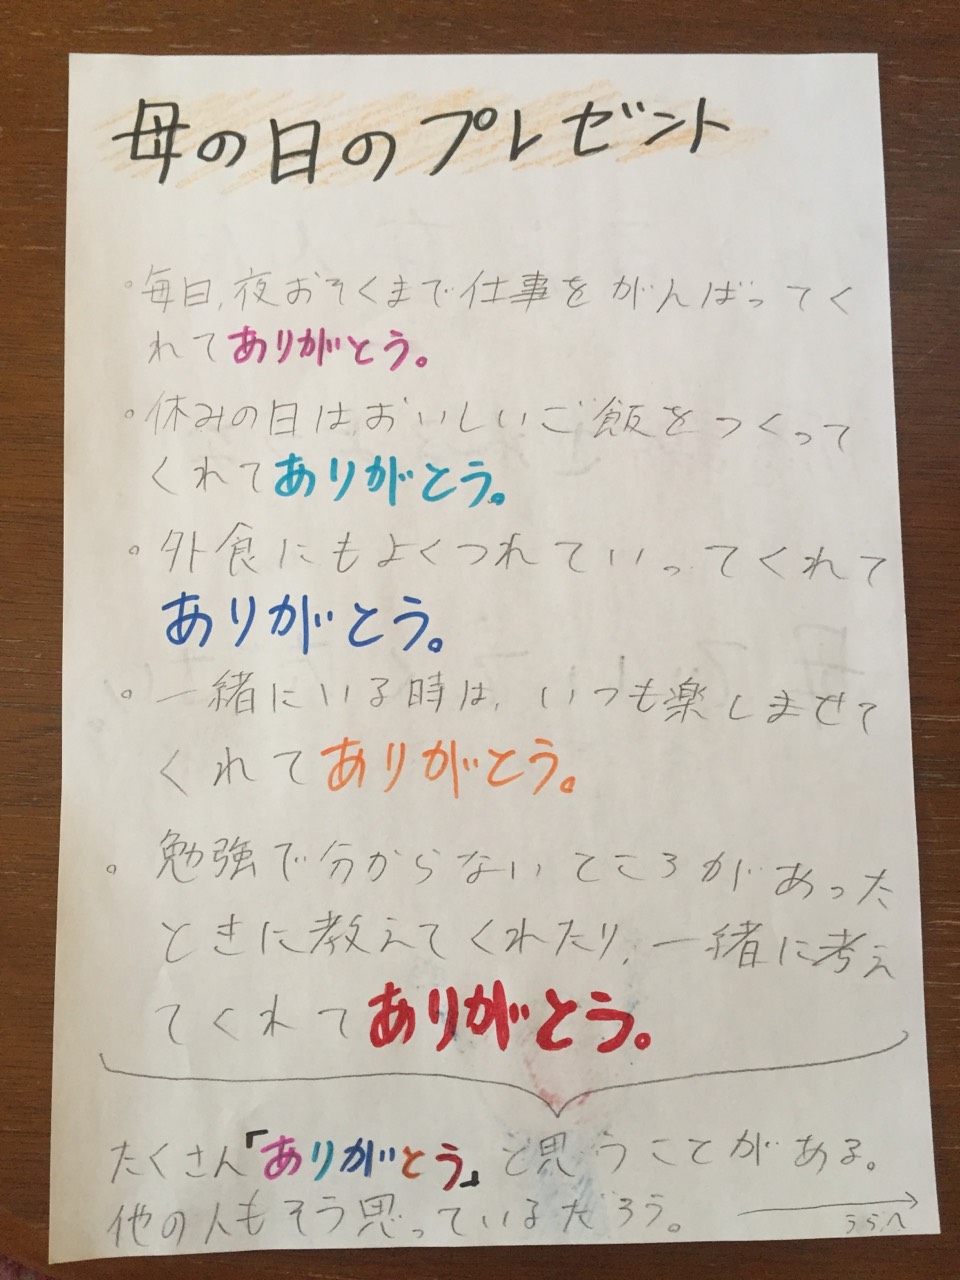 母の日のプレゼント
。毎日,夜おそくまで仕事をがんばってく
れてありがとう。
。休みの日はおいしいご飯をつくって
くれてありがとう。
。外食にもよくつれていってくれて
ありがとう。
。一緒にいる時は,いつも楽しませて
くれてありがとう。
。勉強で分からないところがあった
ときに教えてくれたり,一緒に考え
てくれてありがとう。
たくさん「ありがとう」と思うことがある。
他の人もそう思っているだろう。
うらへ